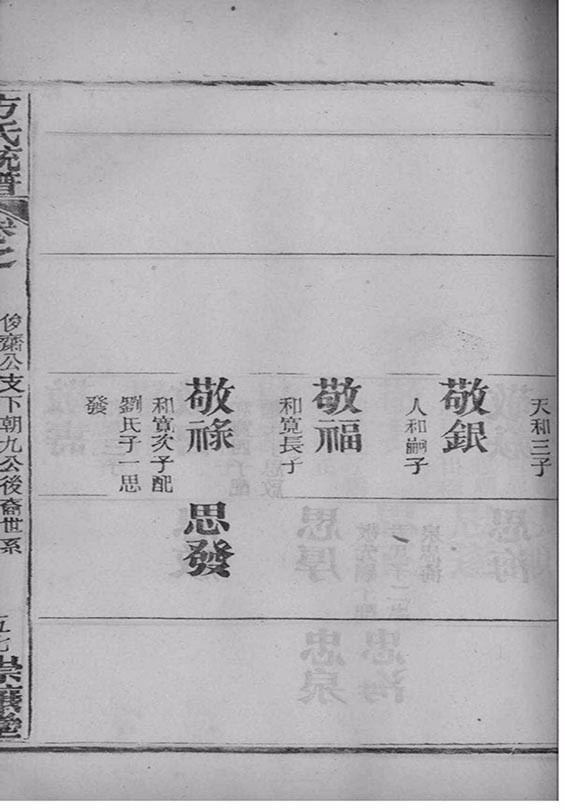 天和三子
敬銀
人和嗣子
敬福
和寬長子
敬祿 思發
和寬次子配
劉氏子一思
發
方氏統譜 卷之
俊齋公支下朝九公後裔世系
五七